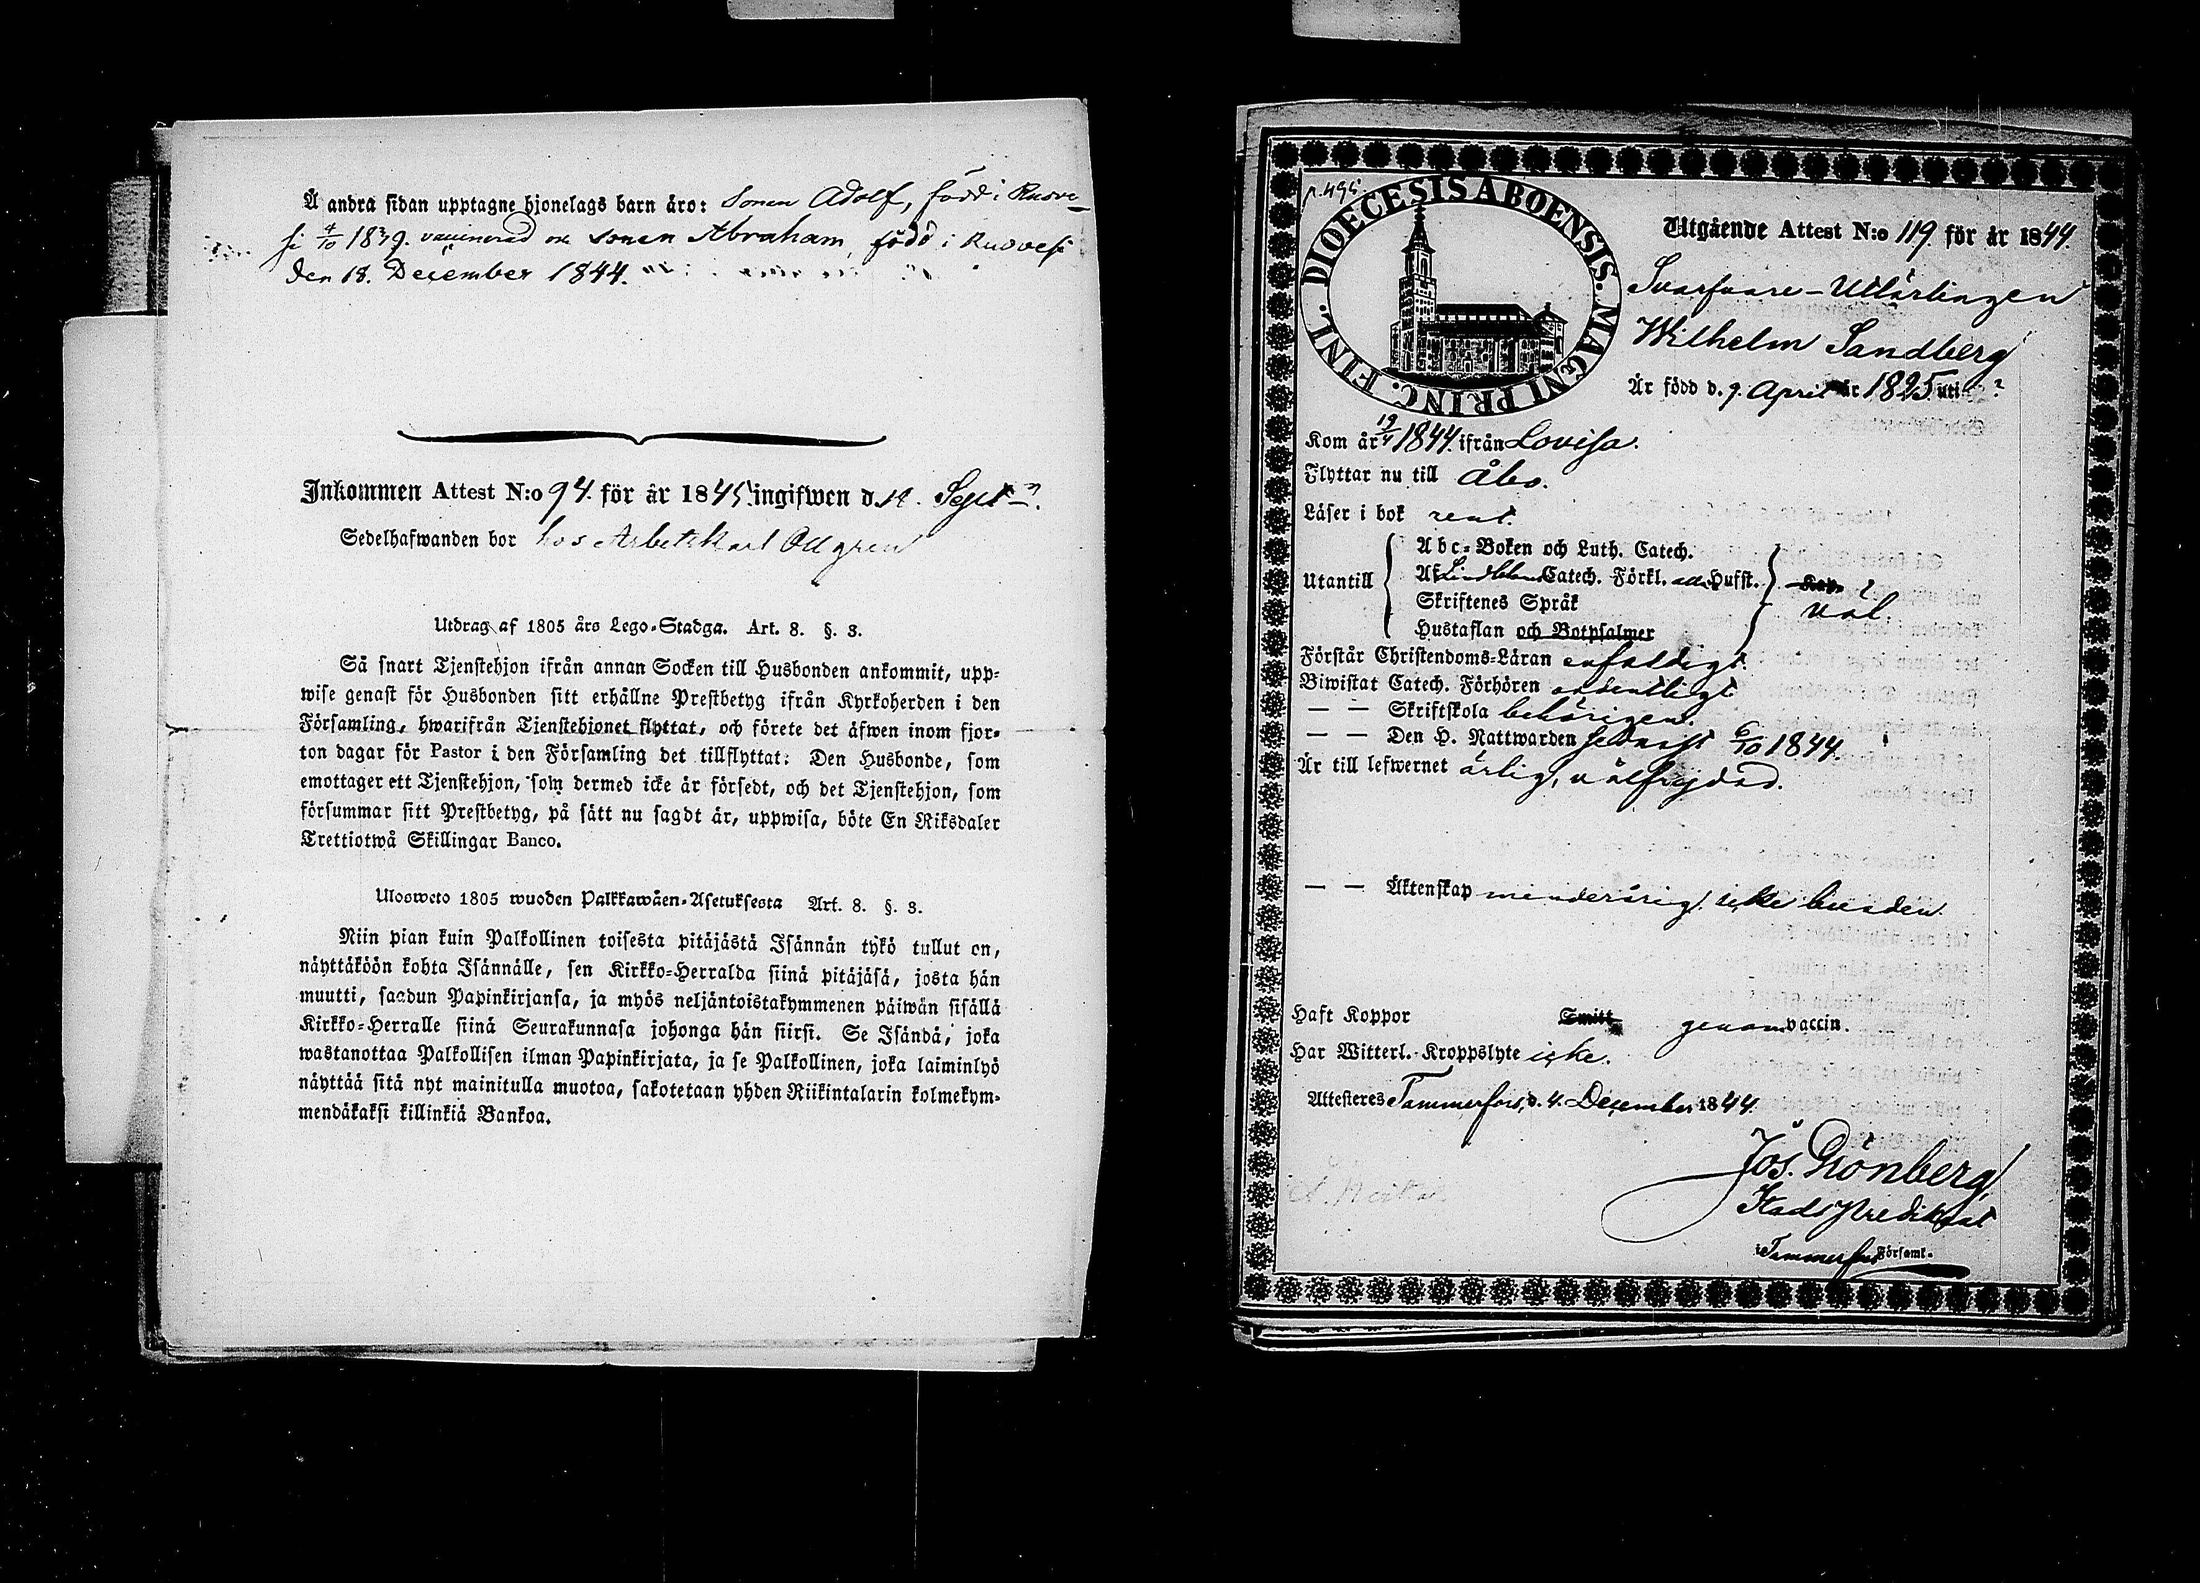 Å andra sidan upptagne hjonelags barn äro: Sonen Adolf, född i Ruove-
si 4/10 1839. vaccinerad och sonen Abraham, född i Ruovesi
den 18. December 1844.
Inkommen Attest N:o 94. för år 1845. ingifwen d. 14. Sept
Sedelhafwanden bor hos Arbetskarl
Utdrag af 1805 års Lego-Stadga. Art. 8. §. 3.
Så snart Tjenstehjon ifrån annan Socken till Husbonden ankommit, upp-
wise genast för Husbonden sitt erhållne Prestbetyg ifrån Kyrkoherden i den
Församling, hwarifrån Tjenstehjonet flyttat, och förete det äfwen inom fjor-
ton dagar för Pastor i den Församling det tillflyttat: Den Husbonde, som
emottager ett Tjenstehjon, som dermed icke är försedt, och det Tjenstehjon, som
försummar sitt Prestbetyg, på sätt nu sagdt är, uppwisa, böte En Riksdaler
Trettiotwå Skillingar Banco.
Ulosweto 1805 wuoden Palkkawäen-Asetuksesta Art. 8. §. 3.
Niin pian kuin Palkollinen toisesta pitäjästä Isännän tykö tullut on,
näyttäköön kohta Isännälle, sen Kirkko-Herralda siinä pitäjäsä, josta hän
muutti, saadun Papinkirjansa, ja myös neljäntoistakymmenen päiwän sisällä
Kirkko-Herralle siinä Seurakunnasa johonga hän siirsi. Se Isändä, joka
wastanottaa Palkollisen ilman Papinkirjata, ja se Palkollinen, joka laiminlyö
näyttää sitä nyt mainitulla muotoa, sakotetaan yhden Riikintalarin kolmekym-
mendäkaksi killinkiä Bankoa.
p. 495.
DIOECESIS ABOENSIS. MAGNI PRINC. FINL.
Utgående Attest N:o 119 för år 1844.
Svarfvare-Utlärlingen
Wilhelm Sandberg
Är född d. 9. April år 1825 uti ?
Kom år 19/4 1844. ifrån Lovisa.
Flyttar nu till Åbo.
Läser i bok rent.
Utantill
Abc-Boken och Luth. Catech.
Af Lindbloms Catech. Förkl. Hufst.
Skriftenes Språk
Hustaflan och Botpsalmer
väl.
Förstår Christendoms-Läran enfaldigt.
Biwistat Catech. Förhören ordentligt
— — Skriftskola behörigen.
— — Den H. Nattwarden sednast 6/10 1844.
Är till lefwernet ärlig, välfrejdad.
— — Äktenskap minderårig, icke bunden.
Haft Koppor Smitt. genom vaccin.
Har Witterl. Kroppslyte icke.
Attesteres Tammerfors, d. 4. December 1844.
Jos. Grönberg,
Stads Predikant
i Tammerfors Församl.